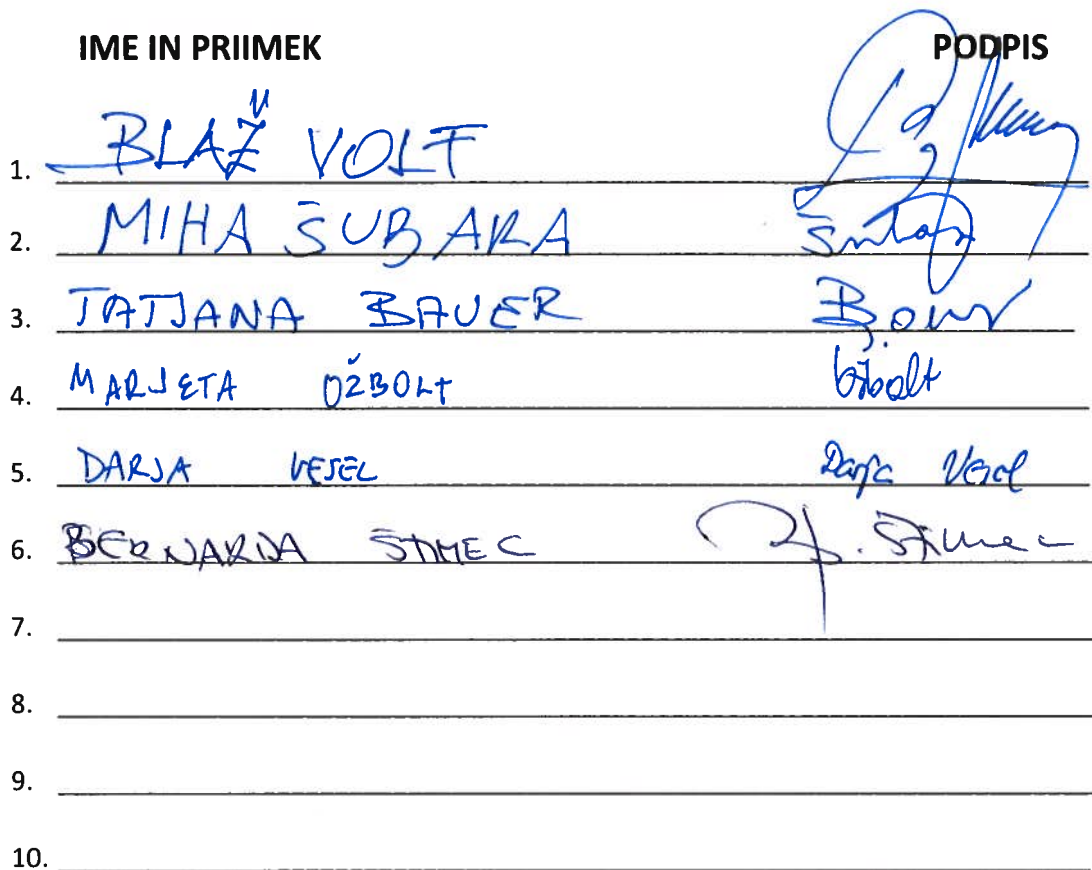 IME IN PRIIMEK PODPIS
1. BLAŽ VOLF
2. MIHA ŠUBARA
3. TATJANA BAUER
4. MARJETA OŽBOLT Ožbolt
5. DARJA VESEL Darja Vesel
6. BERNARDA ŠTIMEC Štimec
7.
8.
9.
10.